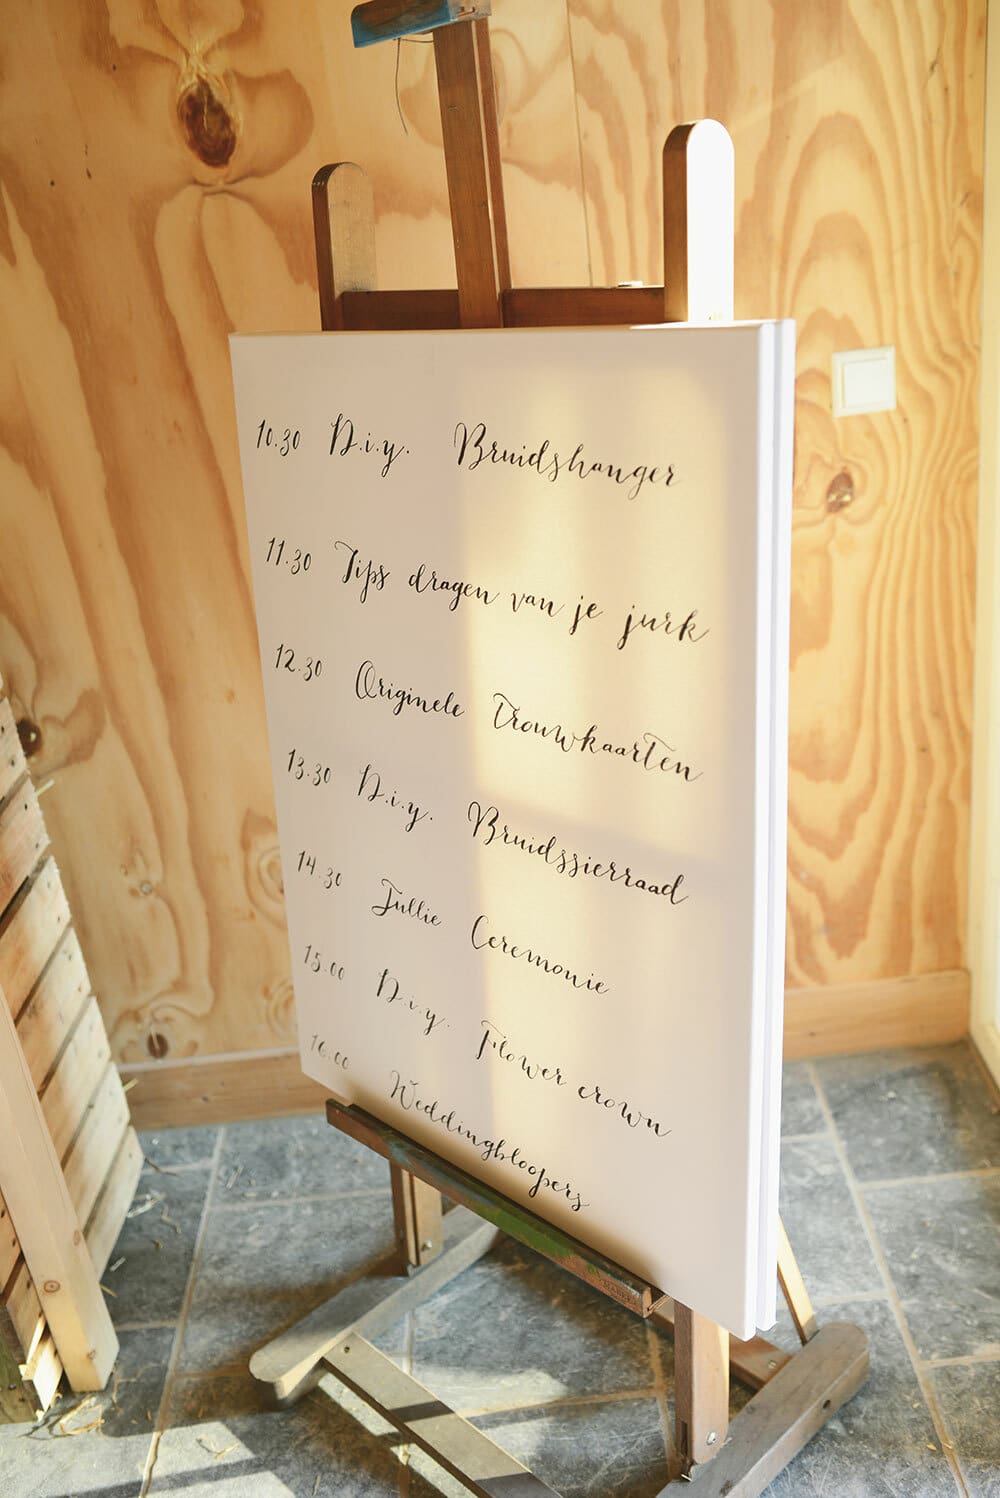 10.30 D.i.y. Bruidshanger
11.30 Tips dragen van je jurk
12.30 Originele Trouwkaarten
13.30 D.i.y. Bruidssierraad
14.30 Jullie Ceremonie
15.00 D.i.y. Flower crown
16.00 Weddingbloopers